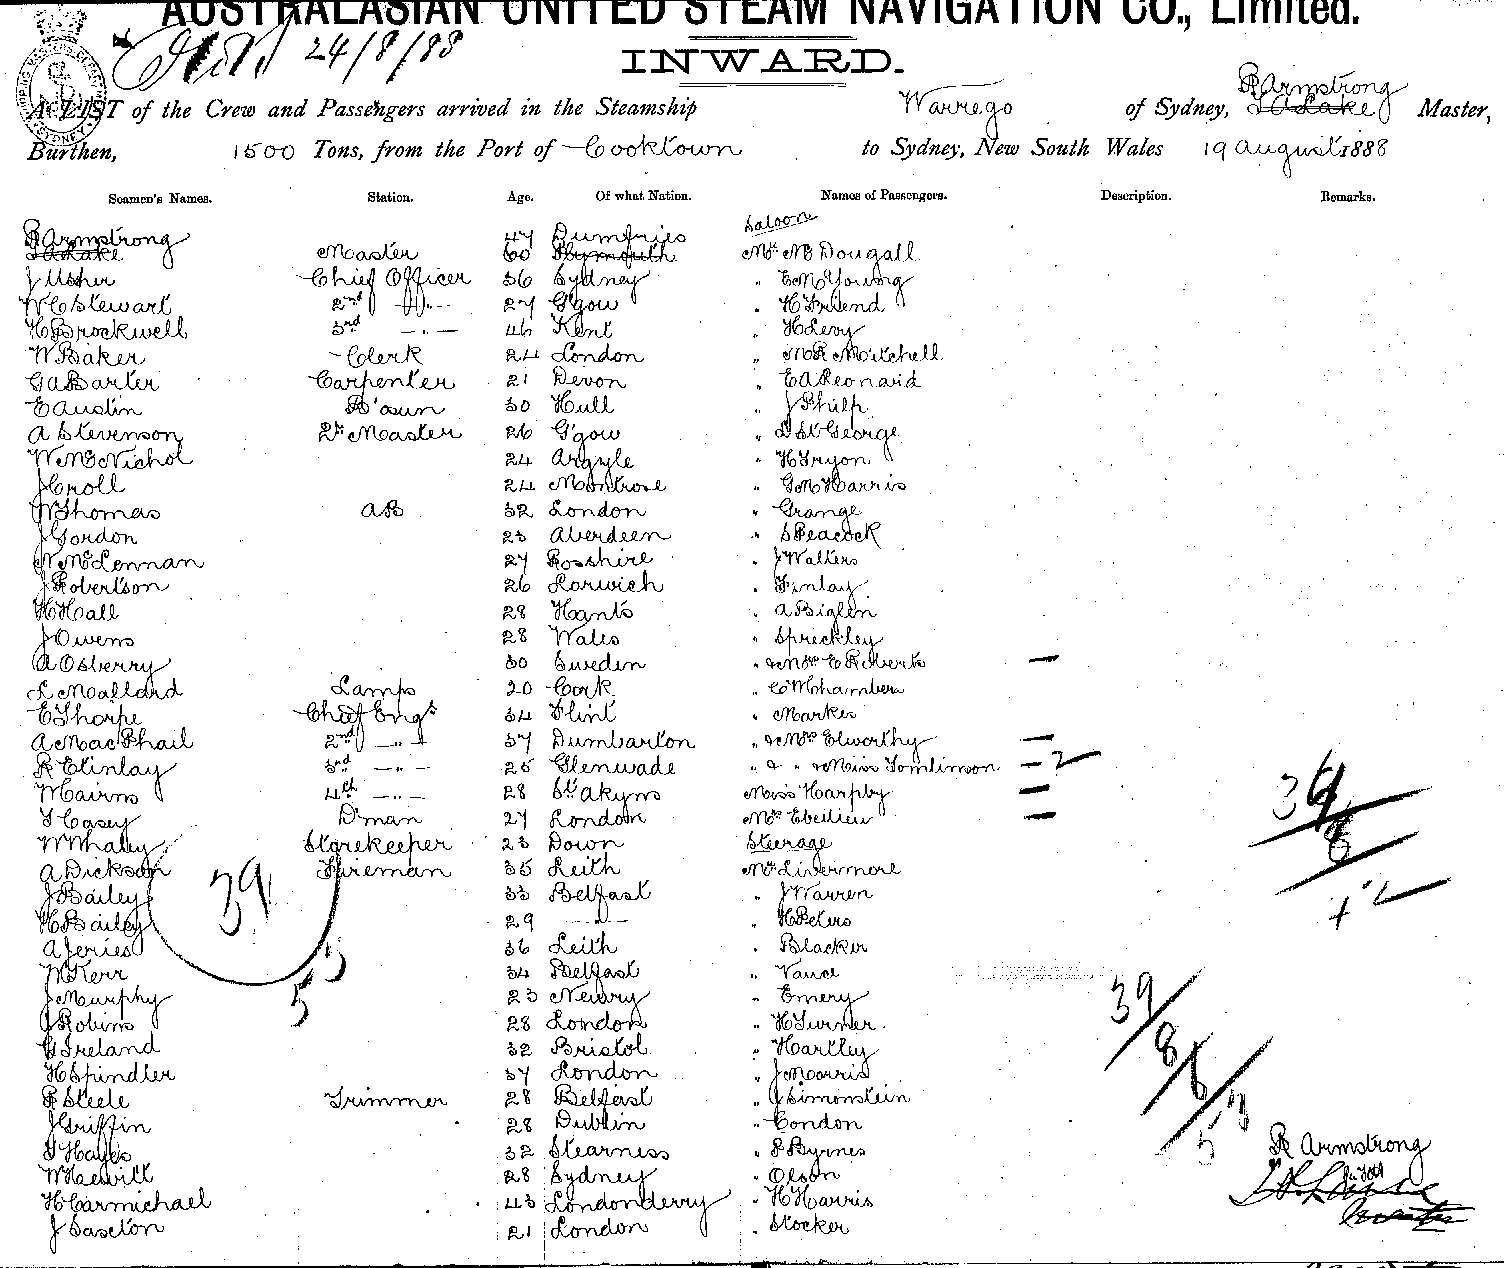 AUSTRALASIAN UNITED STEAM NAVIGATION CO., Limited.
24/8/88
INWARD.
R Armstrong
A LIST of the Crew and Passengers arrived in the Steamship Warrego of Sydney, J A Lake Master,
Burthen, 1500 Tons, from the Port of Cooktown to Sydney, New South Wales 19 August 1888
Seamen's Names. Station. Age. Of what Nation. Names of Passengers. Description. Remarks.
Saloon
R Armstrong 47 Dumfries
Lake Master 60 Plymouth Mr McDougall
J Usher Chief Officer 36 Sydney " E M Young
W C Stewart 2nd -"- 27 G'gow " H Friend
H Brockwell 3rd -"- 46 Kent " H Levy
W Baker Clerk 24 London " M R Mitchell
G A Barter Carpenter 21 Devon " E A Leonard
E Austin B'osun 30 Hull " J Philp
A Stevenson 2nd Master 26 G'gow " St George
W McNichol 24 Argyle " H Tryon
J Croll 24 Montrose " G M Harris
W Thomas AB 32 London " Grange
J Gordon 23 Aberdeen " S Peacock
W McLennan 27 Rosshire " J Walters
J Robertson 26 Lerwich " Finlay
H Hall 28 Hants " A Biglen
J Owens 28 Wales " Spreckley
A Osberry 30 Sweden " & Mrs E Roberts —
L Mallard Lamps 20 Cork " C W Chambers
E Thorpe Chief Engr 34 Flint " Markes
A MacPhail 2nd -"- 37 Dumbarton " & Mrs Elworthy —
R E Finlay 3rd -"- 25 " & " & Miss Tomlinson — 2
W Cairns 4th -"- 28 Miss Harpby —
T Casey D'man 27 London Mr —
W Whaley Storekeeper 23 Down Steerage
A Dickson Fireman 35 Leith Mr Livermore
J Bailey 33 Belfast " J Warren
H Bailey 29 -"- " H Peters
A Jeries 36 Leith " Blacker
W Kerr 34 Belfast " Vance
J Murphy 23 Newry " Emery
J Robins 28 London " H Turner
G Ireland 32 Bristol " Hartley
H Spindler 37 London " J Morris
R Steele Trimmer 28 Belfast " J Simonstein
J Griffin 28 Dublin " Condon
T Hayes 32 Stearness " P Byrnes
W Hewitt 28 Sydney " Olson
H Carmichael 43 Londonderry " H Harris
J Saxton 21 London " Stocker
39
53
5
39/8/6/53
5
R Armstrong